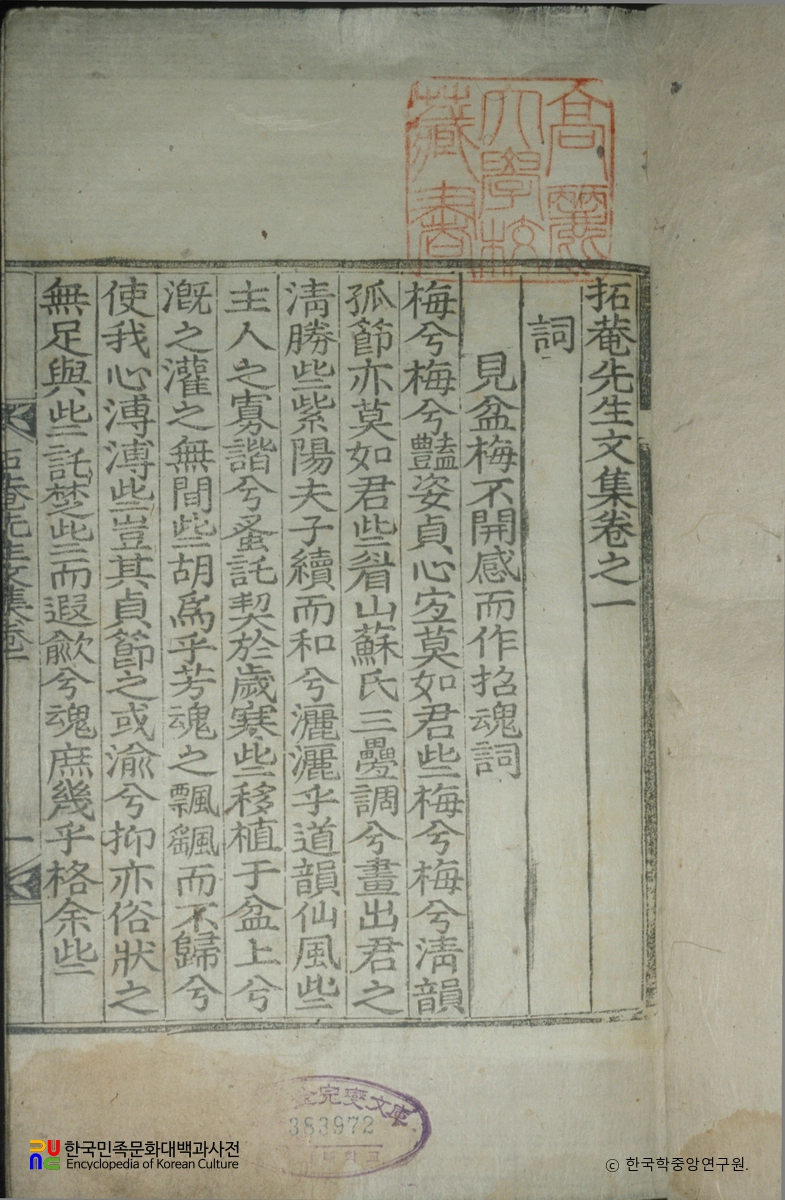 高麗
大學校
藏書
拓菴先生文集卷之一
詞
見盆梅不開感而作招魂詞
梅兮梅兮豔姿貞心宐莫如君些梅兮梅兮淸韻
孤節亦莫如君些眉山蘇氏三疊調兮畫出君之
淸勝些紫陽夫子續而和兮灑灑乎道韻仙風些
主人之寡諧兮蚤託契於歲寒些移植于盆上兮
漑之灌之無間些胡爲乎芳魂之飄颻而不歸兮
使我心溥溥些豈其貞節之或渝兮抑亦俗狀之
無足與些託楚些而遐歈兮魂庶幾乎格余些
拓菴先生文集卷一
一
完燮文庫
383972
한국민족문화대백과사전
Encyclopedia of Korean Culture
© 한국학중앙연구원.